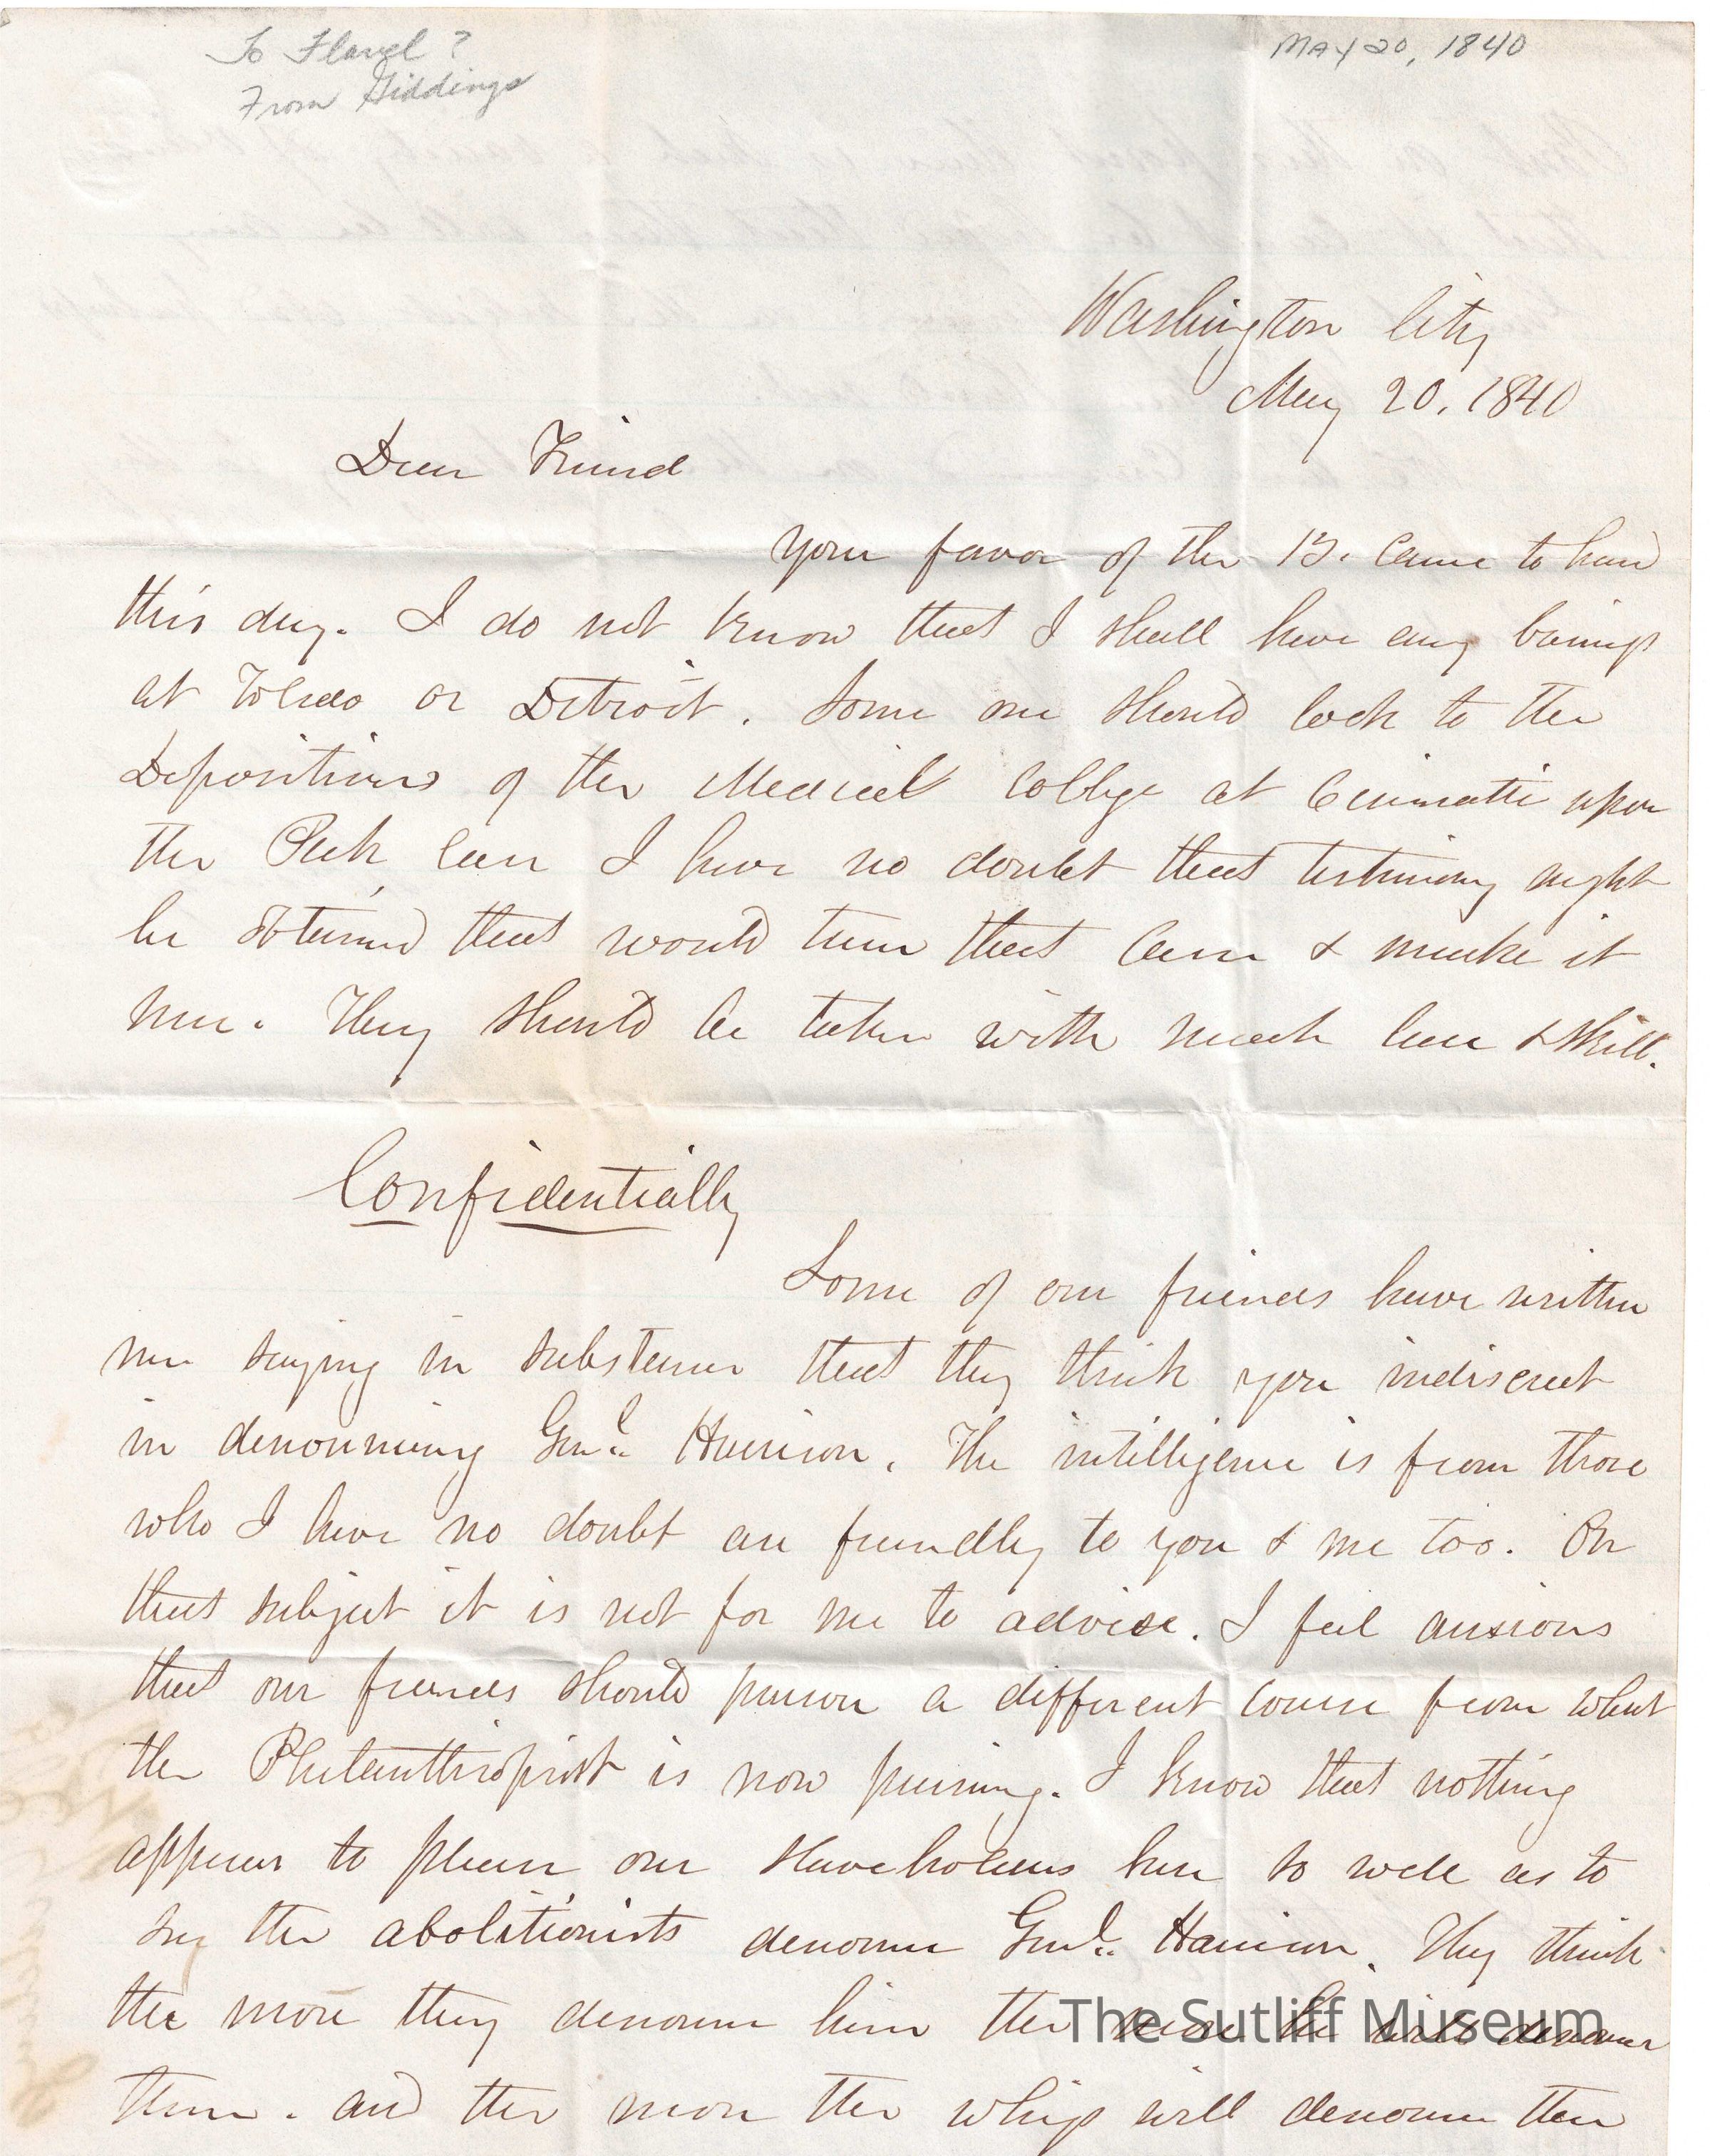 To Flavel ?
From Giddings
May 20, 1840
Washington City
May 20. 1840
Dear Friend
Your favor of the 13. came to hand
this day. I do not know that I shall have any
at Toledo or Detroit. Some one should look to the
Depositions of the Medical College at Cincinnatti upon
the Peck case I have no doubt that testimony might
be obtained that would turn that case & make it
. They should be taken with much care & skill.
Confidentially
Some of our friends have written
me saying in substance that they think you indiscreet
in denouncing Genl. Harrison. The intelligence is from those
who I have no doubt are friendly to you & me too. On
that subject it is not for me to advise. I feel anxious
that our friends should pursue a different course from what
the Philanthropist is now pursuing. I know that nothing
appears to please our slaveholders here so well as to
see the abolitionists denounce Genl. Harrison. They think
the more they denounce him the more he will denounce
them. and the more the whigs will denounce them
The Sutliff Museum